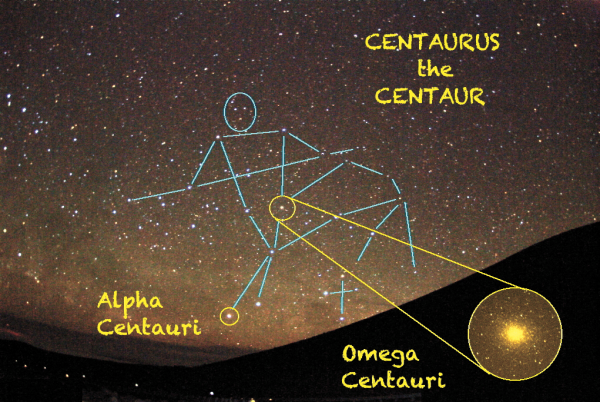 CENTAURUS
the
CENTAUR
Alpha
Centauri
Omega
Centauri